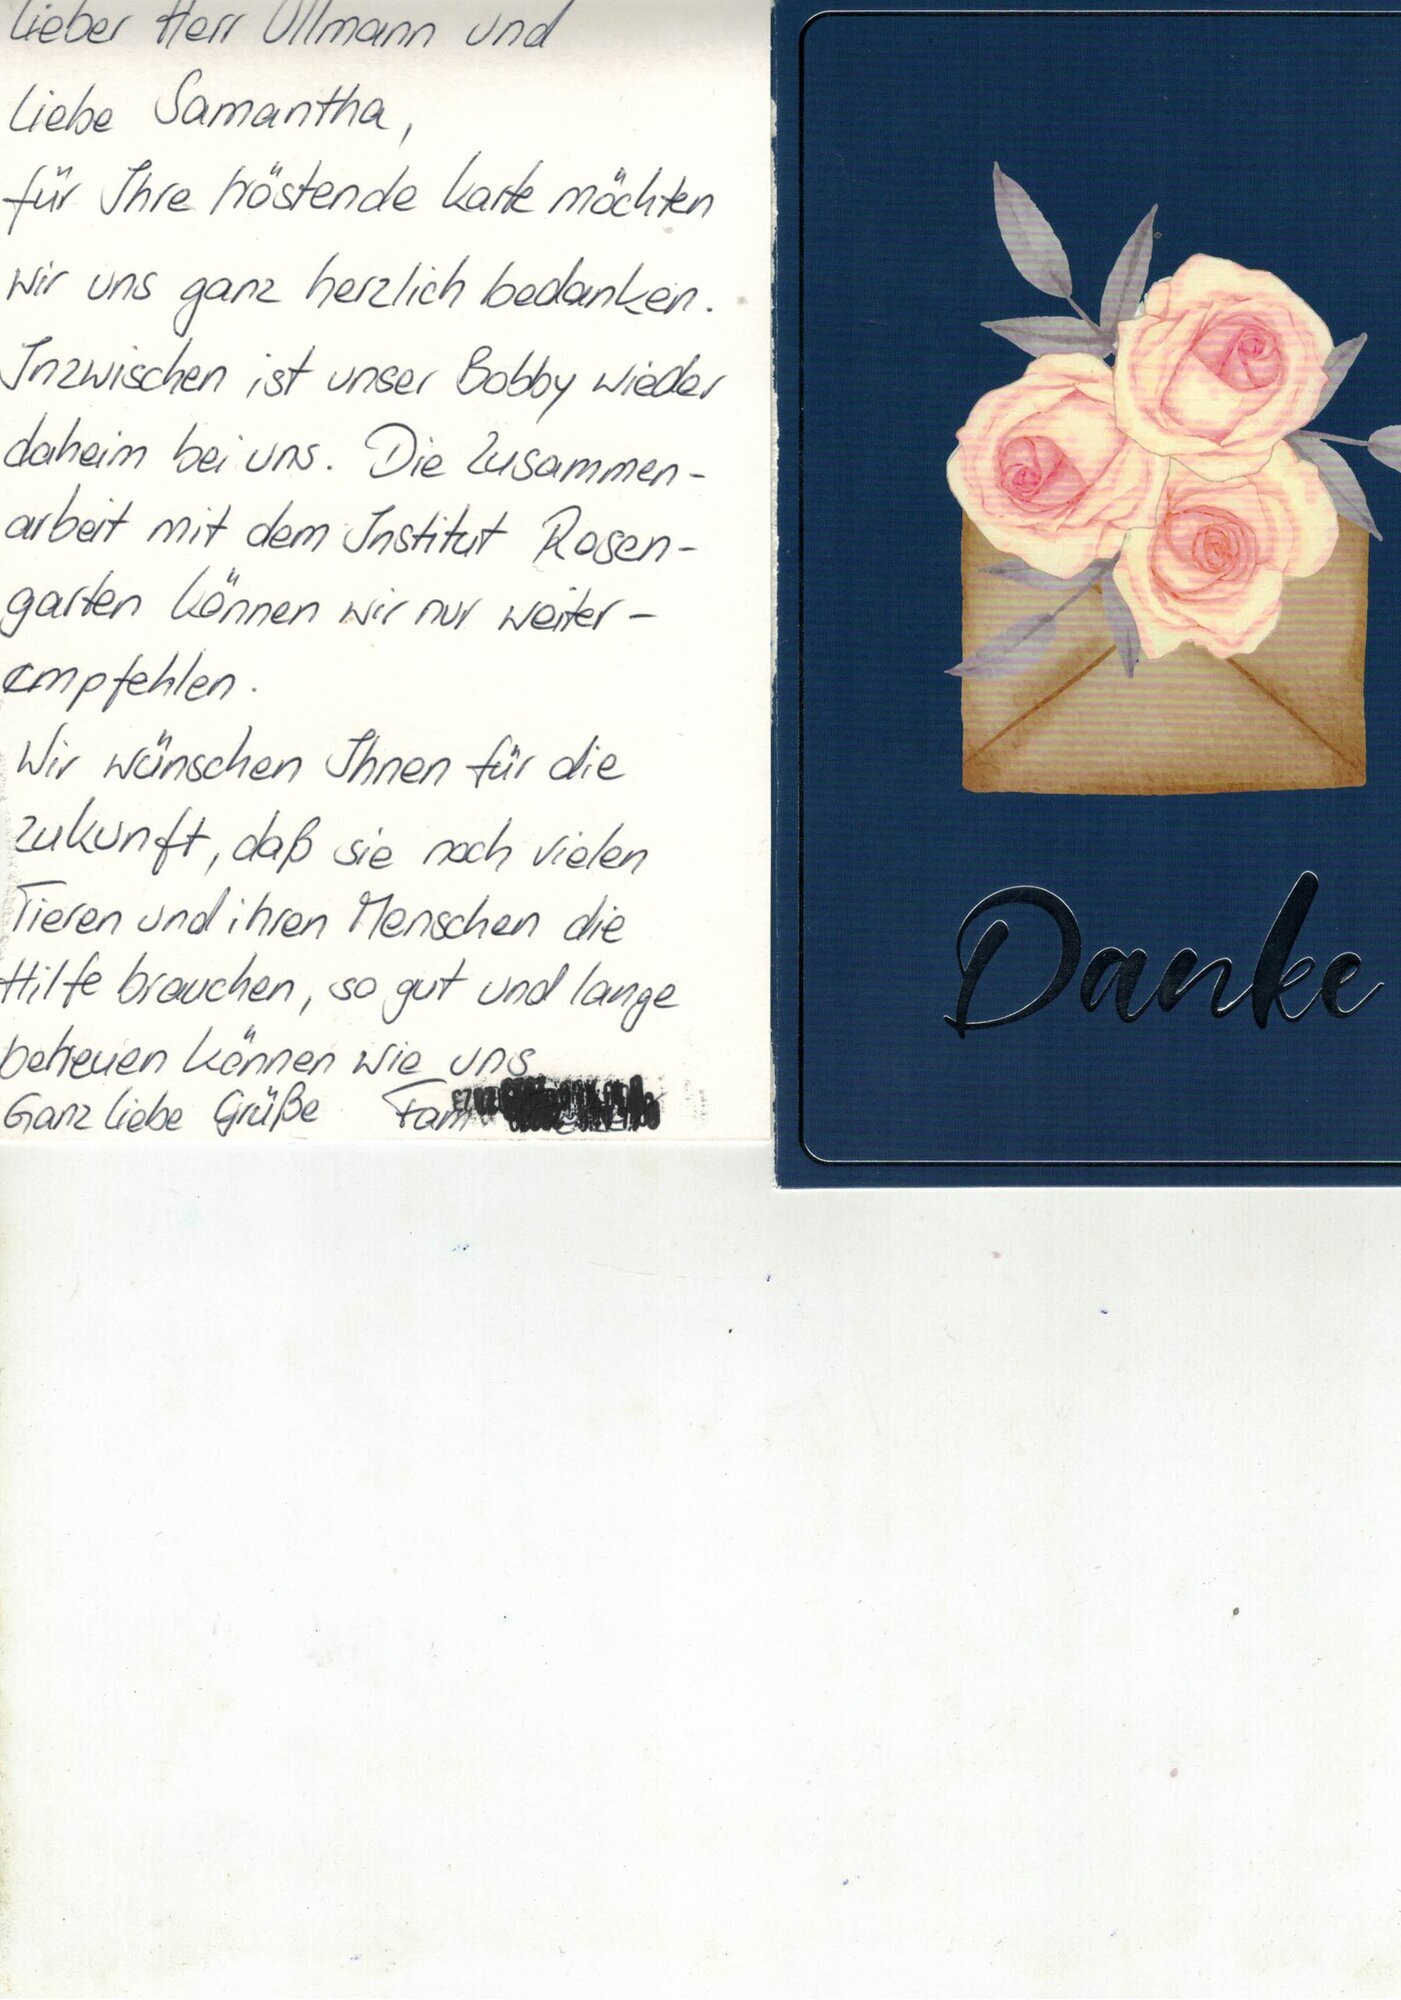 Lieber Herr Ullmann und
Liebe Samantha,
für Ihre tröstende Karte möchten
wir uns ganz herzlich bedanken.
Inzwischen ist unser Bobby wieder
daheim bei uns. Die Zusammen-
arbeit mit dem Institut Rosen-
garten können wir nur weiter-
empfehlen.
Wir wünschen Ihnen für die
Zukunft, daß sie noch vielen
Tieren und ihren Menschen die
Hilfe brauchen, so gut und lange
betreuen können wie uns
Ganz liebe Grüße Fam
Danke